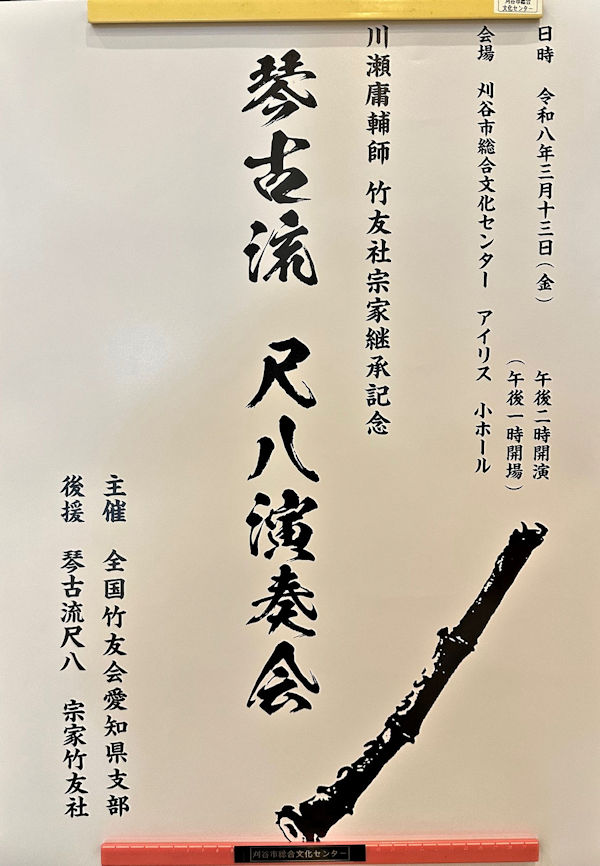 日時 令和八年三月十三日（金） 午後二時開演
（午後一時開場）
会場 刈谷市総合文化センター アイリス 小ホール
川瀬庸輔師 竹友社宗家継承記念
琴古流 尺八演奏会
主催 全国竹友会愛知県支部
後援 琴古流尺八 宗家竹友社
刈谷市総合文化センター
刈谷市総合
文化センター